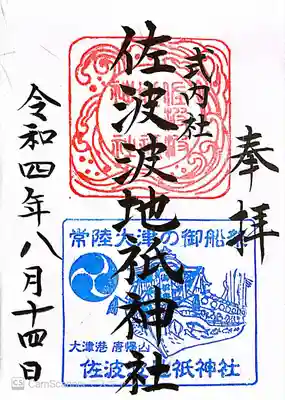 奉拝
式内社
佐波波地祇神社
令和四年八月十四日
常陸大津の御船祭
大津港 唐帰山
佐波波地祇神社
CS CamScanner